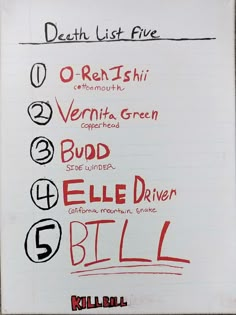 Death List Five
1 O-Ren Ishii
cottonmouth
2 Vernita Green
copperhead
3 BUDD
SIDEWINDER
4 ELLE Driver
California mountain snake
5 BILL
KILL BILL